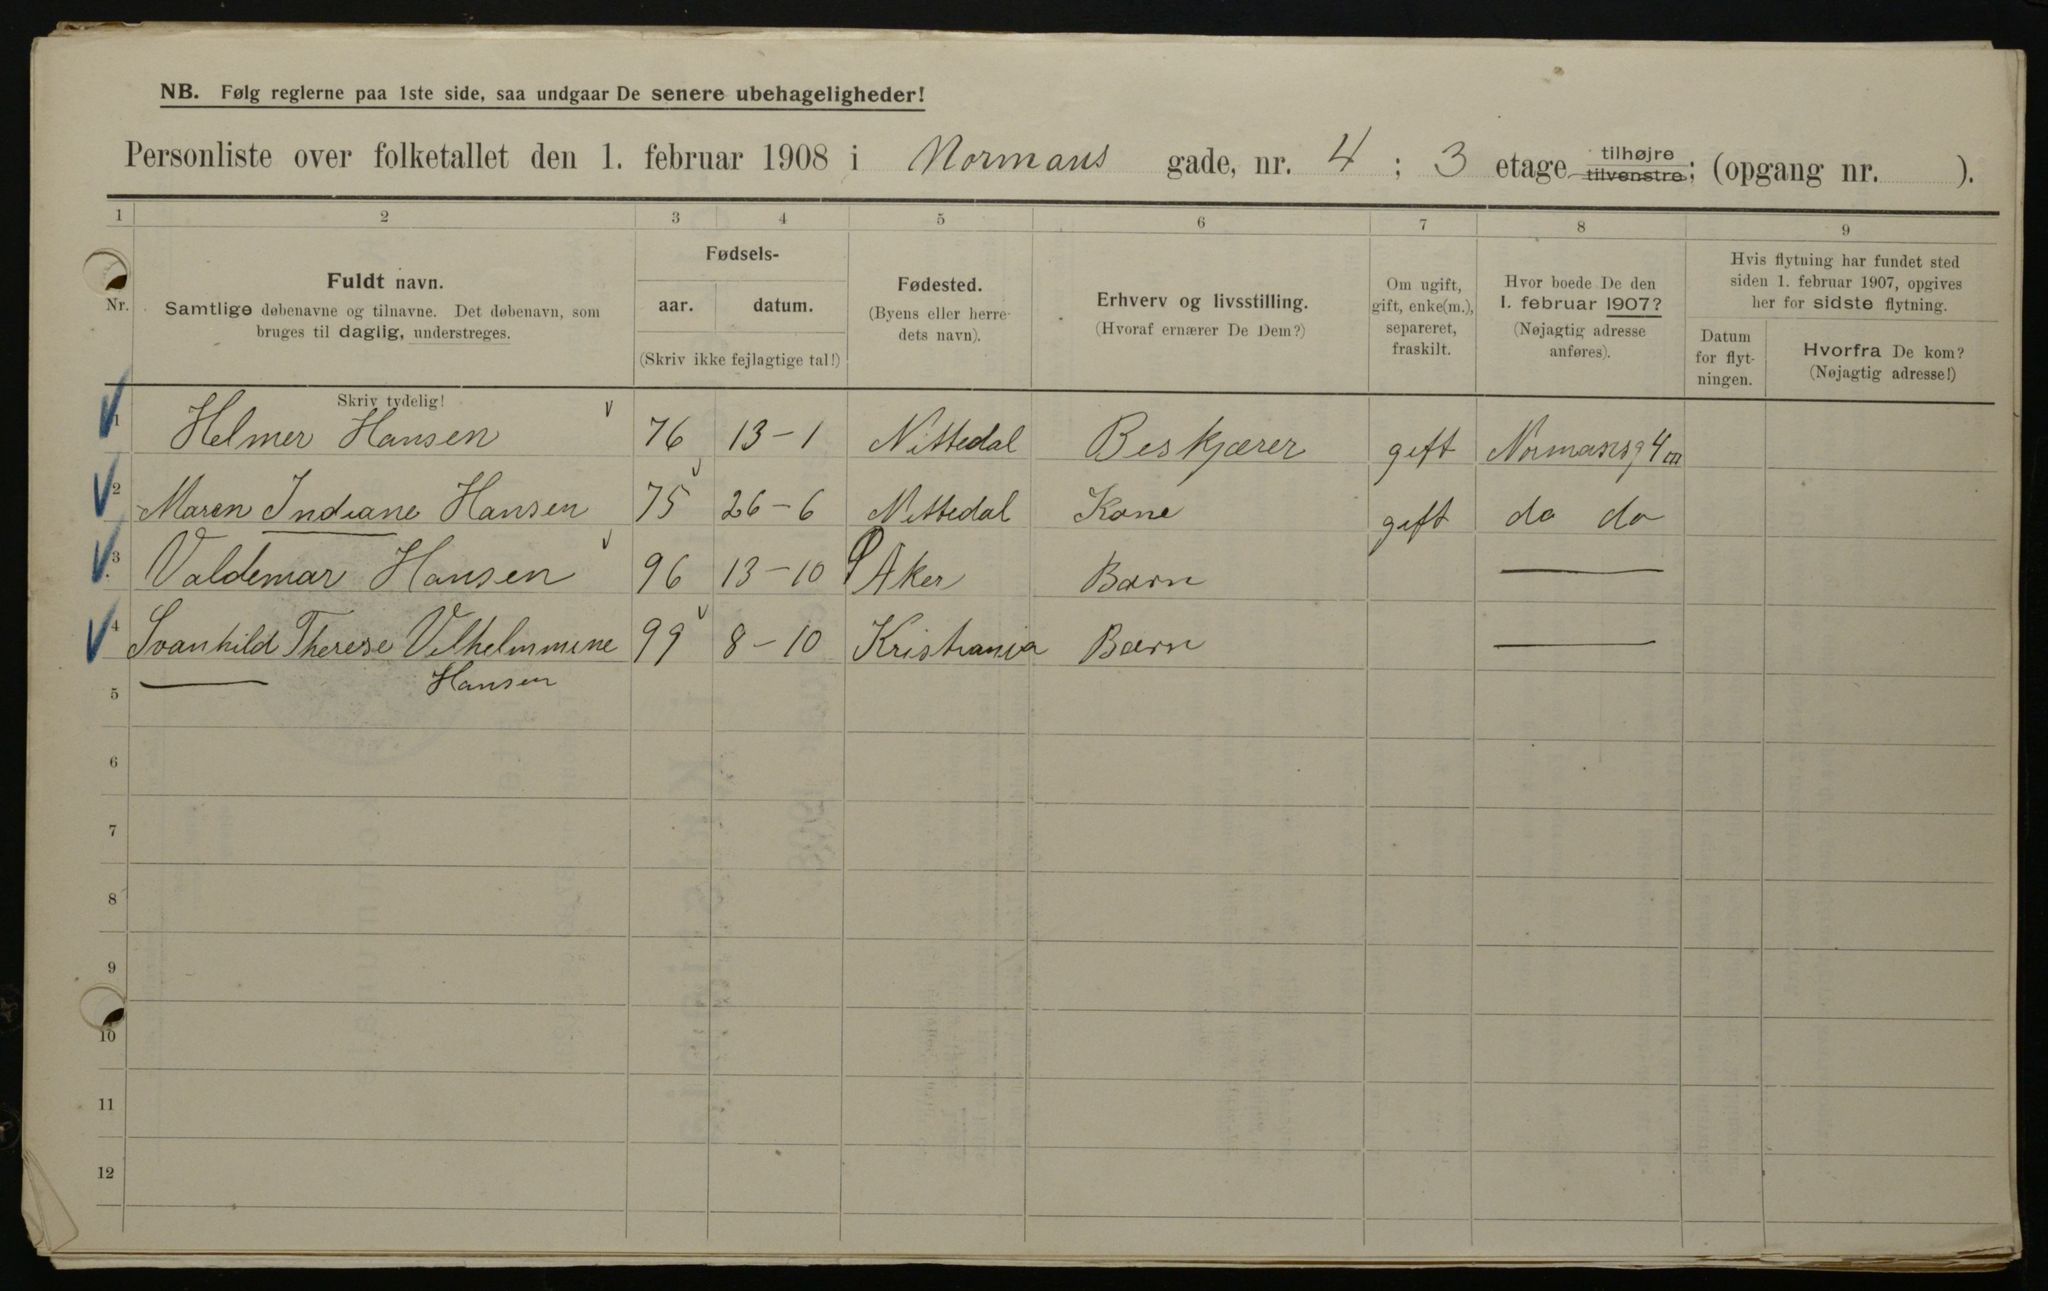 NB. Følg reglerne paa 1ste side, saa undgaar De senere ubehageligheder!
Personliste over folketallet den 1. februar 1908 i Normans gade, nr. 4 ; 3 etage tilhøjre tilvenstre; (opgang nr. ).
1 2 3 4 5 6 7 8 9
Nr.
Fuldt navn.
Samtlige døbenavne og tilnavne. Det døbenavn, som
bruges til daglig, understreges.
Fødsels-
aar. datum.
(Skriv ikke fejlagtige tal!)
Fødested.
(Byens eller herre-
dets navn).
Erhverv og livsstilling.
(Hvoraf ernærer De Dem?)
Om ugift,
gift, enke(m.),
separeret,
fraskilt.
Hvor boede De den
1. februar 1907?
(Nøjagtig adresse
anføres).
Hvis flytning har fundet sted
siden 1. februar 1907, opgives
her for sidste flytning.
Datum
for flyt-
ningen.
Hvorfra De kom?
(Nøjagtig adresse!)
Skriv tydelig!
1 Helmer Hansen 76 13-1 Nittedal Beskjærer gift Normansg 4 III
2 Maren Indiane Hansen 75 26-6 Nittedal Kone gift do do
3 Valdemar Hansen 96 13-10 Aker Barn —
4 Svanhild Therese Vilhelmmine 99 8-10 Kristiania Barn —
Hansen
5
6
7
8
9
10
11
12